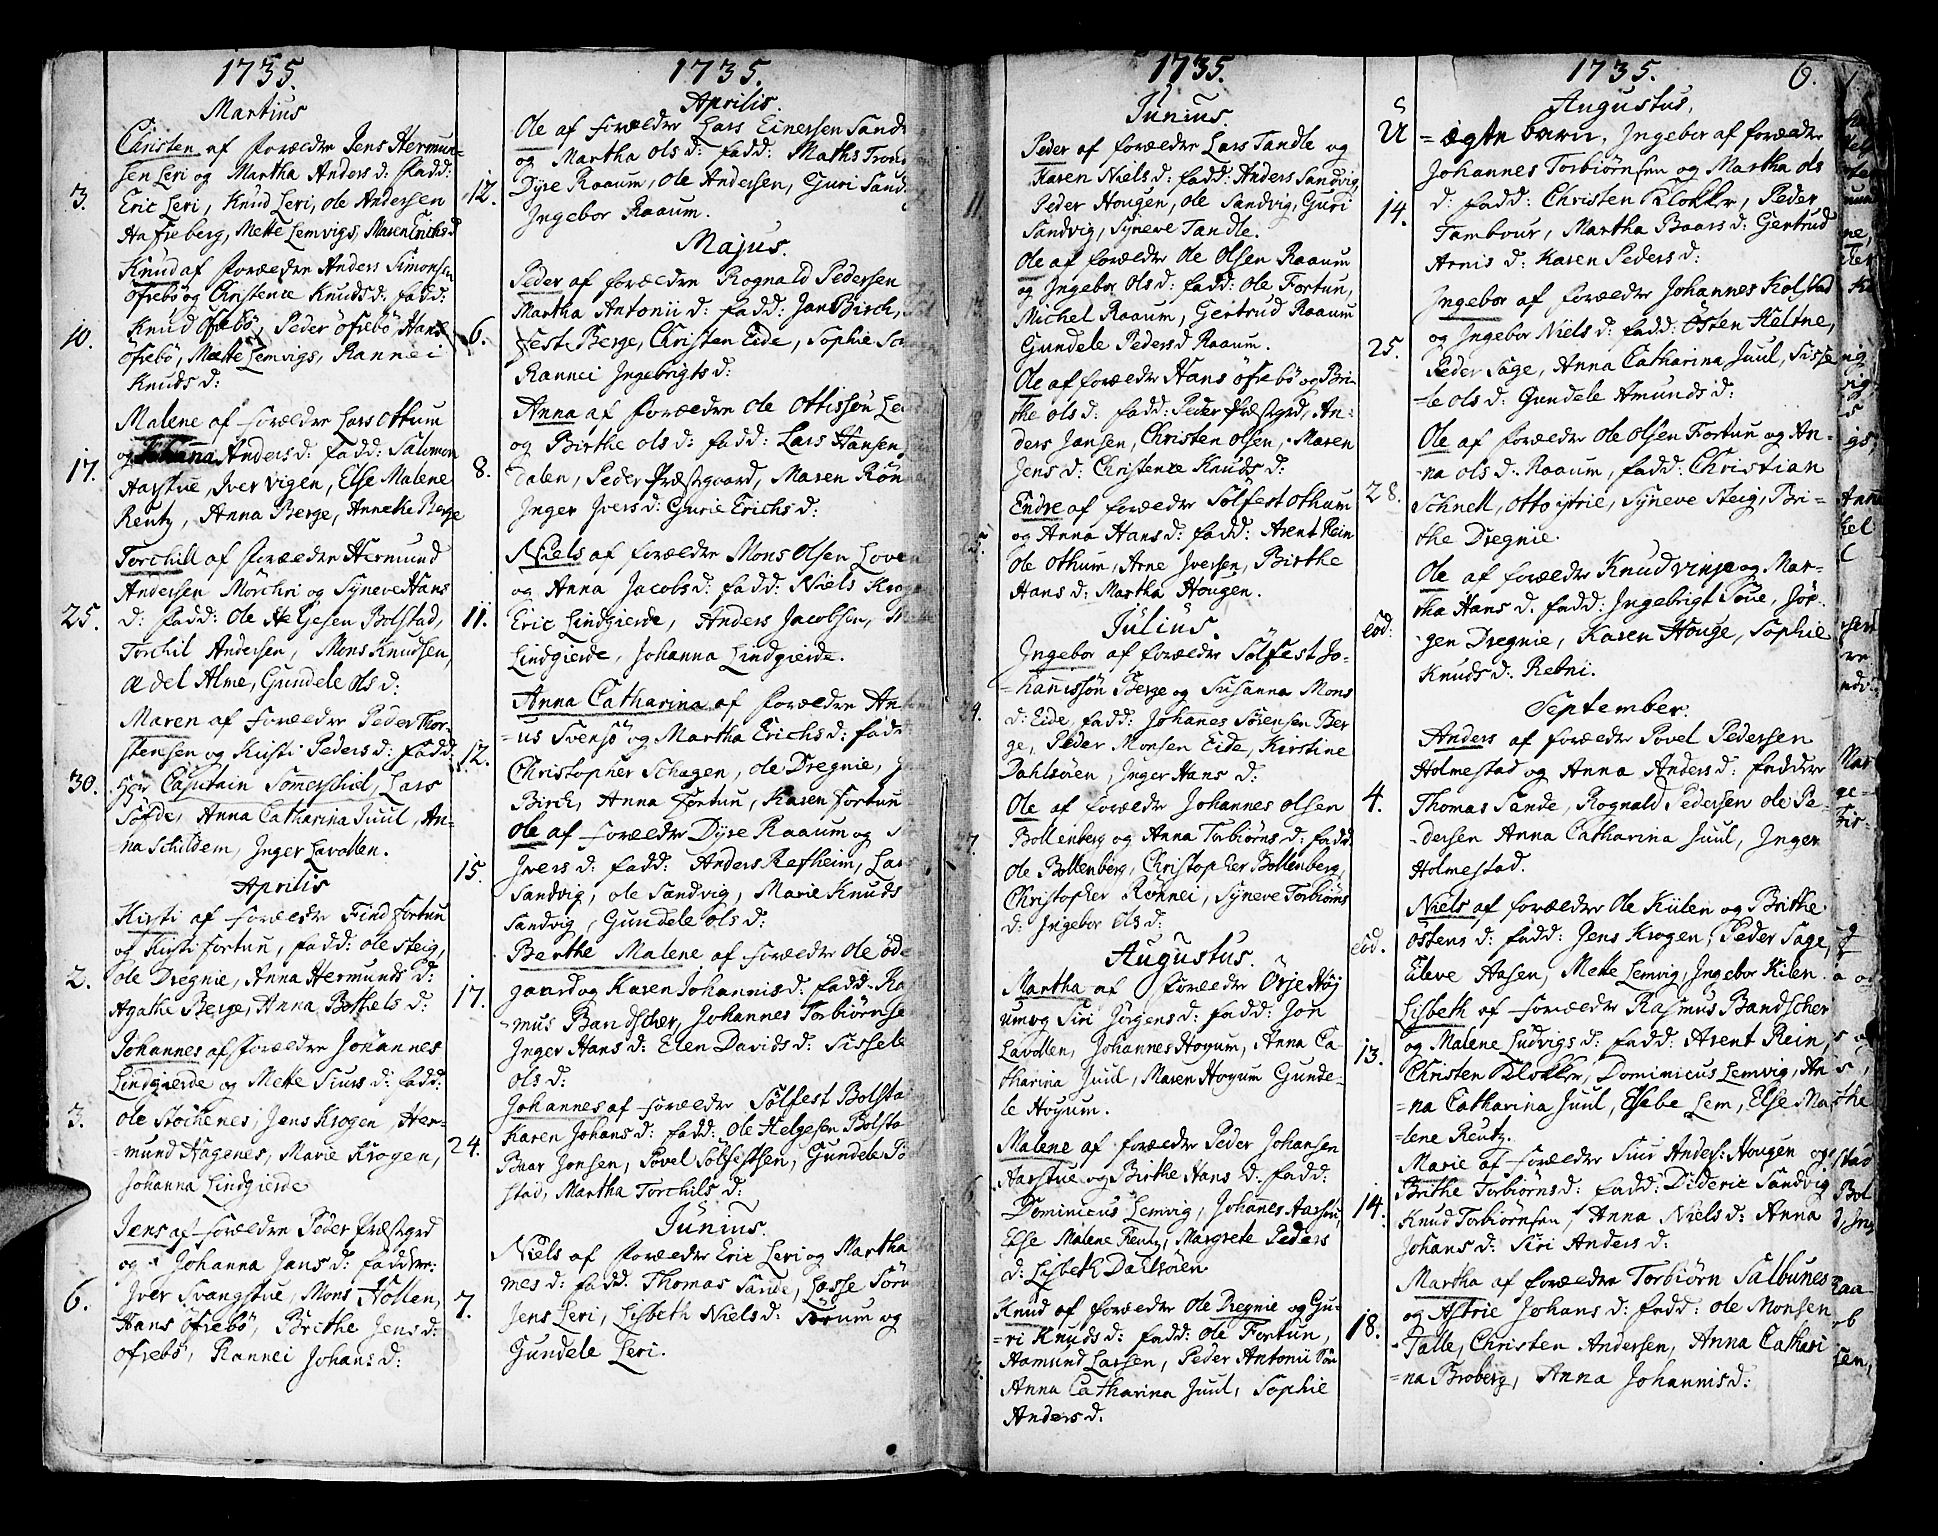 1735.
Martius
Christen af forældre Jens Hermun-
sen Leri og Martha Anders d: fadd:
3. Eric Leri, Knud Leri, Ole Andersen
Hafreberg, Mette Lemvigs, Maren Erichs d
Knud af forældre Anders Simonsen
Ofrebø og Christence Knuds d: fadd:
10. Knud Ofrebø, Peder Ofrebø, Hans
Ofrebø, Mætte Lemvigs, Rannei
Knuds d:
Malene af forældre Lars Othum
og Johanna Anders d: fadd: Salomon
17. Aarstue, Iver Vigen, Else Malene
Reutz, Anna Berge, Anneke Berge
Torchill af forældre Hermund
Andersen Mörchri og Syneve Hans
25. d: fadd: Ole Helgesen Bolstad,
Torchil Andersen, Mons Knudsen,
Adel Alme, Gundele Ols d:
Maren af forældre Peder Thor-
stensen og Kirsti Peders d: fadd:
30. Her Captain Sommerschiel, Lars
Söfde, Anna Catharina Juul, An-
na Schildem, Inger Lavollen.
Aprilis
Kirsti af forældre Find Fortun
og Kirsti Fortun, fadd: Ole Steig,
2. Ole Dregnie, Anna Hermunds d:
Agathe Berge, Anna Bothels d:
Johannes af forældre Johannes
Lindgierde og Mette Siurs d: fadd:
3. Ole Stöchenes, Jens Krogen, Her-
-mund Hagenes, Marie Krogen,
Johanna Lindgierde
Jens af forældre Peder Præstgrd
og Johanna Jans d: faddere:
6. Iver Svangstue, Mons Holten,
Hans Ofrebö, Brithe Jens d:
Ofrebö, Rannei Johans d:
1735.
Aprilis.
Ole af forældre Lars Einersen Sand
og Martha Ols d: fadd: Maths Trond
12. Dyre Raaum, Ole Andersen, Guri Sand
Ingebor Raaum.
Majus.
Peder af forældre Rognald Pedersen
Martha Antonii d: fadd: Jan Birch,
6. fest Berge, Christen Eide, Sophie
Rannei Ingebrigts d:
Anna af forældre Ole Ottissön
og Birthe Ols d: fadd: Lars Hansen,
8. Dalen, Peder Præstgaard, Maren
Inger Ivers d: Gurie Erichs d:
Niels af forældre Mons Olsen Loven
og Anna Jacobs d: fadd: Niels Krogen
11. Eric Lindgierde, Anders Jacobsen,
Lindgierde, Johanna Lindgierde.
Anna Catharina af forældre
-us Svensö og Martha Erichs d: fadd
12. Christopher Schagen, Ole Dregnie,
Birch, Anna Fortun, Karen Fortun
Ole af forældre Dyre Raaum og
15. Ivers d: fadd: Anders Refheim, Lars
Sandvig, Ole Sandvig, Marie Knuds d
Sandvig, Gundele Ols d:
Berthe Malene af forældre Ole Öde
17. gaard og Karen Johannis d: fadd: Ras
-mus Bandscher, Johannes Torbiörnse
Inger Hans d: Elen Davids d: Sissele
Ols d:
Johannes af forældre Sölfest Bolstad
Karen Johans d: fadd: Ole Helgesen Bolsta
24. Baar Jonsen, Povel Sölfestsen, Gundele
stad, Martha Torchils d:
Junius.
Niels af forældre Eric Leri og Martha
mes d: fadd: Thomas Sande, Lasse
7. Jens Leri, Lisbeth Niels d: og
Gundele Leri.
1735.
Junius.
Peder af forældre Lars Tandle og
Karen Niels d: fadd: Anders Sandvig
11. Peder Hougen, Ole Sandvig, Guri
Sandvig, Syneve Tandle.
Ole af forældre Ole Olsen Raaum
og Ingebor Ols d: fadd: Ole Fortun,
Michel Raaum, Gertrud Raaum
Gundele Peders d Raaum.
Ole af forældre Hans Ofrebö og Bri-
the Ols d: fadd: Peder Præstgrd, An-
ders Jansen, Christen Olsen, Maren
Jens d: Christence Knuds d:
Endre af forældre Sölfest Othum
og Anna Hans d: fadd: Arent Rein
25. Ole Othum, Arne Iversen, Birthe
Hans d: Martha Hougen.
Julius.
Ingebor af forældre Sölfest Jo-
-hannissön Berge og Susanna Mons
d: Eide, fadd: Johanes Sörensen Ber
ge, Peder Monsen Eide, Kirstine
Dahlsöen, Inger Hans d:
Ole af forældre Johannes Olsen
Bollenberg og Anna Torbiörns d: fadd.
Ole Bollenberg, Christopher Bollenberg,
Christopher Rönnei, Syneve Torbiörns
d: Ingebor Ols d:
Augustus.
Martha af forældre Örje Höj
um og Siri Jörgens d: fadd: Jon
Lavollen, Johannes Hoyum, Anna Ca-
tharina Juul, Maren Hoyum Gunde-
le Hoyum.
Malene af forældre Peder Johansen
Aarstue og Birthe Hans d: fadd:
Dominicus Lemvig, Johannes Aasen,
Else Malene Reutz, Margrete Peders
d: Lisbeth Dahlsöen
Knud af forældre Ole Dregnie og Gu-
-ri Knuds d: fadd: Ole Fortun,
Aamund Larsen, Peder Antonii Sön
Anna Catharina Juul, Sophie
Anders d:
1735. 6.
Augustus,
U = ægte barn, Ingebor af forældre
Johannes Torbiörnsen og Martha Ols
14. d: fadd: Christen Klokker, Peder
Tambour, Martha Baars d: Gertrud
Arnis d: Karen Peders d:
Ingebor af forældre Johannes Kolstad
og Ingebor Niels d: fadd: Östen Helsne,
25. Peder Sage, Anna Catharina Juul, Sisse
-le Ols d: Gundele Amunds d:
Ole af forældre Ole Olsen Fortun og An-
-na Ols d: Raaum, fadd: Christian
28. Schnell, Otto Ytrie, Syneve Steig, Bri-
the Dregnie.
Ole af forældre Knud Vinje og Mar-
tha Hans d. fadd: Ingebrigt Söue, Jör-
eod: gen Dregnie, Karen Houge, Sophie
Knuds d: Refni.
September.
Anders af forældre Povel Pedersen
Holmestad og Anna Anders d: faddere
4. Thomas Sande, Rognald Pedersen Ole Pe-
-dersen Anna Catharina Juul, Inger
Holmestad.
Niels af forældre Ole Kiilen og Brithe
eod. Östens d: fadd: Jens Krogen, Peder Sage,
Eleve Aasen, Mette Lemvig, Ingebor Kilen.
Lisbeth af forældre Rasmus Bandscher
og Malene Ludvigs d: fadd: Arent Rein,
13. Christen Klokker, Dominicus Lemvig, An
-na Catharina Juul, Elsebe Lem, Else Ma
-lene Reutz.
Marie af forældre Siur Anders: Hougen og
Brithe Torbiörns d: fadd: Dideric Sandvig
14. Knud Torbiörnsen, Anna Niels d: Anna
Johans d: Siri Anders d:
Martha af forældre Torbiörn Salbunes
og Astrie Johans d: fadd: Ole Monsen
18. Talle, Christen Andersen, Anna Cathari
-na Broberg, Anna Johannis d: